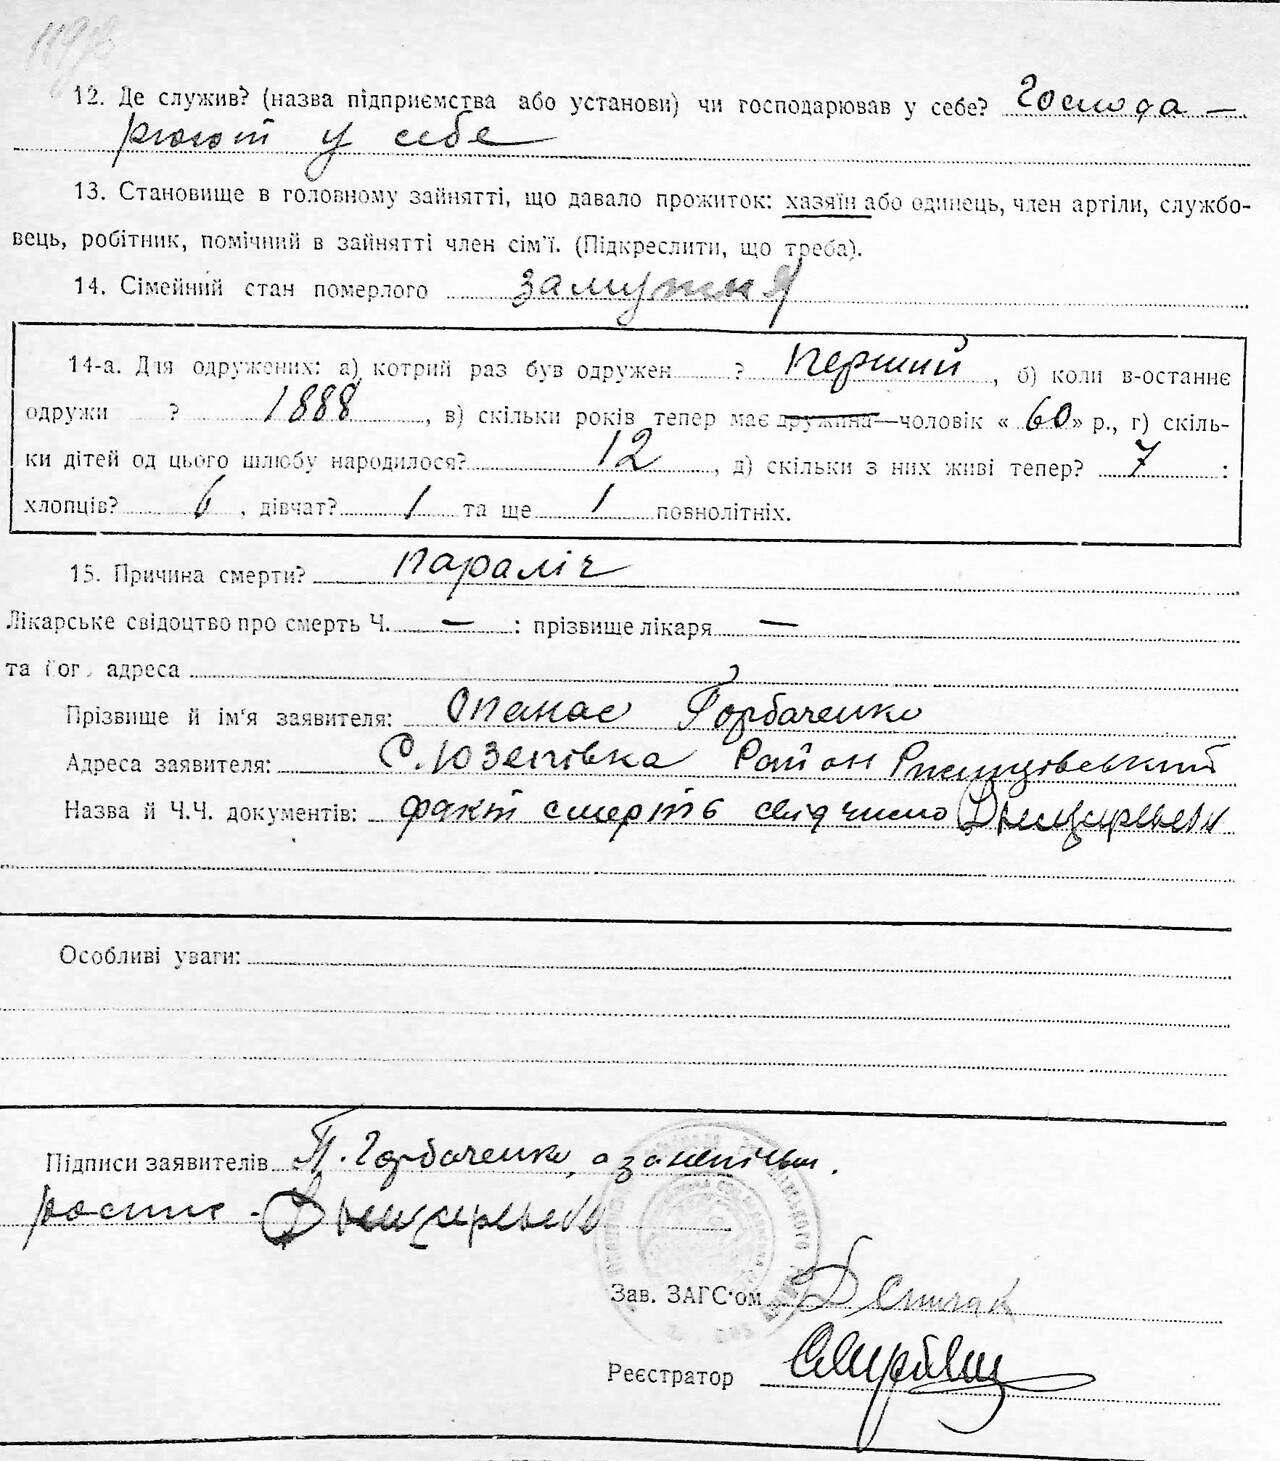 12. Де служив? (назва підприємства або установи) чи господарював у себе? Господа-
рюют у себе
13. Становище в головному зайнятті, що давало прожиток: хазяїн або одинець, член артілі, службо-
вець, робітник, помічний в зайнятті член сім'ї. (Підкреслити, що треба).
14. Сімейний стан померлого замужня
14-а. Для одружених: а) котрий раз був одружен ? перший, б) коли в-останнє
одружи ? 1888, в) скільки років тепер має дружина—чоловік « 60 » р., г) скіль-
ки дітей од цього шлюбу народилося? 12, д) скільки з них живі тепер? 7 :
хлопців? 6, дівчат? 1 та ще 1 повнолітніх.
15. Причина смерти? параліч
Лікарське свідоцтво про смерть Ч. — : прізвище лікаря —
та йог адреса
Прізвище й ім'я заявителя: Опанас Горбаченко
Адреса заявителя: С. Юзепівка Район Ржищівський
Назва й Ч.Ч. документів: факт смерті свідчимо
Особливі уваги:
Підписи заявителів Горбаченко, а
роспис -
Зав. ЗАГС'ом
Реєстратор